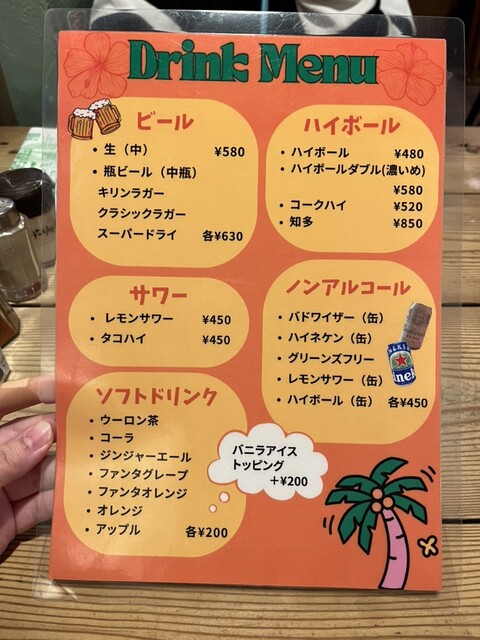 Drink Menu
ビール
・生（中） ¥580
・瓶ビール（中瓶）
キリンラガー
クラシックラガー
スーパードライ 各¥630
ハイボール
・ハイボール ¥480
・ハイボールダブル(濃いめ)
¥580
・コークハイ ¥520
・知多 ¥850
サワー
・レモンサワー ¥450
・タコハイ ¥450
ノンアルコール
・バドワイザー（缶）
・ハイネケン（缶）
・グリーンズフリー
・レモンサワー（缶）
・ハイボール（缶） 各¥450
ソフトドリンク
・ウーロン茶
・コーラ
・ジンジャーエール
・ファンタグレープ
・ファンタオレンジ
・オレンジ
・アップル 各¥200
バニラアイス
トッピング
＋¥200